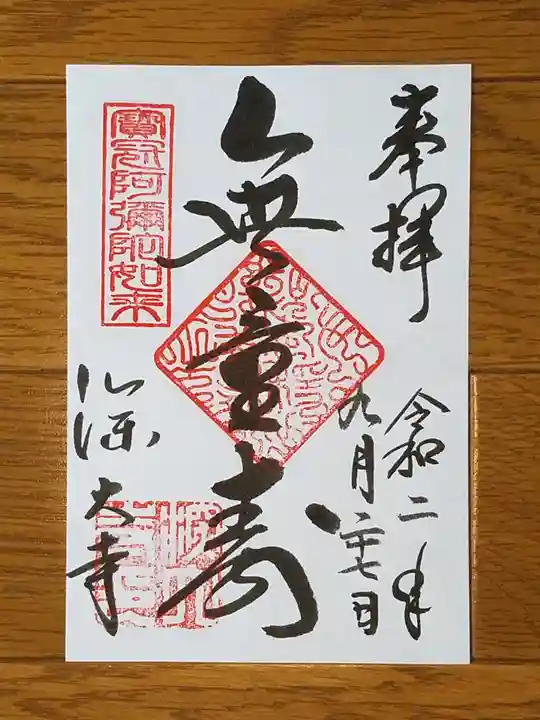 奉拝
令和二年
九月二十七日
無量寿
寶冠阿彌陀如来
深大寺